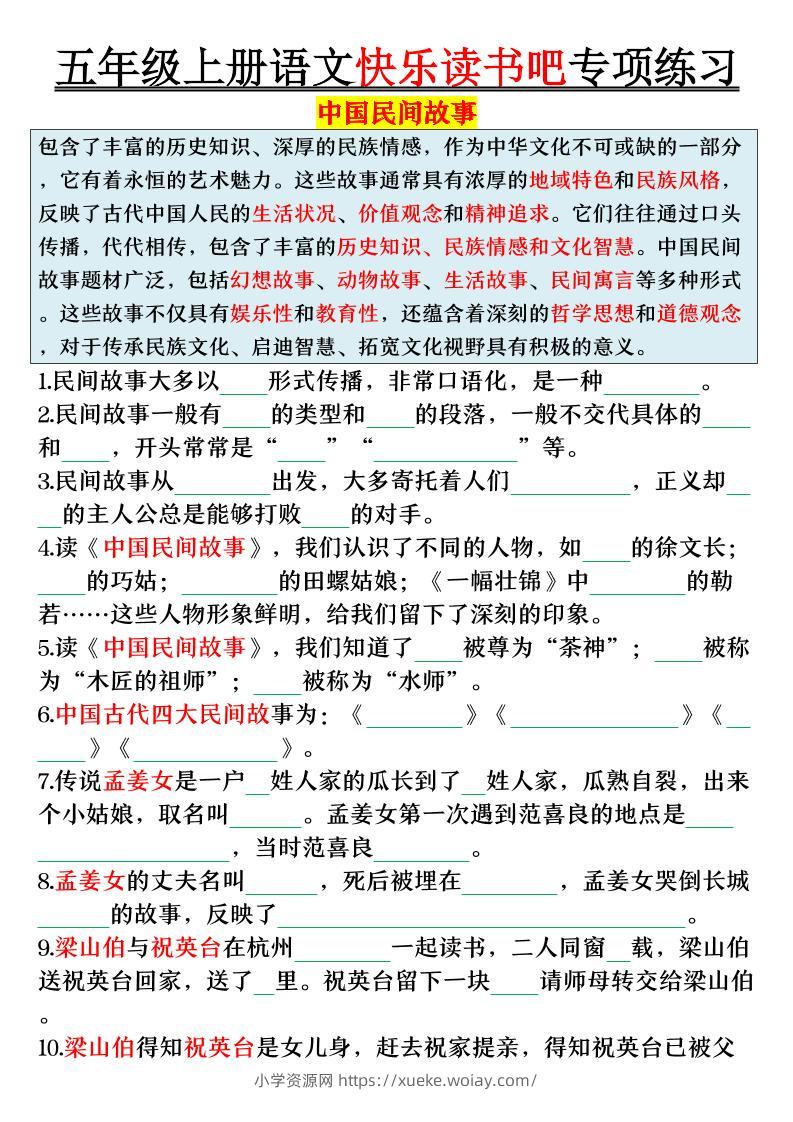 五年级上册语文快乐读书吧专项练习
中国民间故事
包含了丰富的历史知识、深厚的民族情感，作为中华文化不可或缺的一部分
，它有着永恒的艺术魅力。这些故事通常具有浓厚的地域特色和民族风格，
反映了古代中国人民的生活状况、价值观念和精神追求。它们往往通过口头
传播，代代相传，包含了丰富的历史知识、民族情感和文化智慧。中国民间
故事题材广泛，包括幻想故事、动物故事、生活故事、民间寓言等多种形式
。这些故事不仅具有娱乐性和教育性，还蕴含着深刻的哲学思想和道德观念
，对于传承民族文化、启迪智慧、拓宽文化视野具有积极的意义。
1.民间故事大多以____形式传播，非常口语化，是一种________。
2.民间故事一般有____的类型和____的段落，一般不交代具体的____
和____，开头常常是“____”“____________”等。
3.民间故事从________出发，大多寄托着人们__________，正义却__
__的主人公总是能够打败____的对手。
4.读《中国民间故事》，我们认识了不同的人物，如____的徐文长；
____的巧姑；________的田螺姑娘；《一幅壮锦》中________的勒
若……这些人物形象鲜明，给我们留下了深刻的印象。
5.读《中国民间故事》，我们知道了____被尊为“茶神”；____被称
为“木匠的祖师”；____被称为“水师”。
6.中国古代四大民间故事为：《________》《______________》《__
____》《____________》。
7.传说孟姜女是一户__姓人家的瓜长到了__姓人家，瓜熟自裂，出来
个小姑娘，取名叫______。孟姜女第一次遇到范喜良的地点是____
________________，当时范喜良________。
8.孟姜女的丈夫名叫______，死后被埋在________，孟姜女哭倒长城
______的故事，反映了__________________________________。
9.梁山伯与祝英台在杭州________一起读书，二人同窗__载，梁山伯
送祝英台回家，送了__里。祝英台留下一块____请师母转交给梁山伯
。
10.梁山伯得知祝英台是女儿身，赶去祝家提亲，得知祝英台已被父
小学资源网 https://xueke.woiay.com/